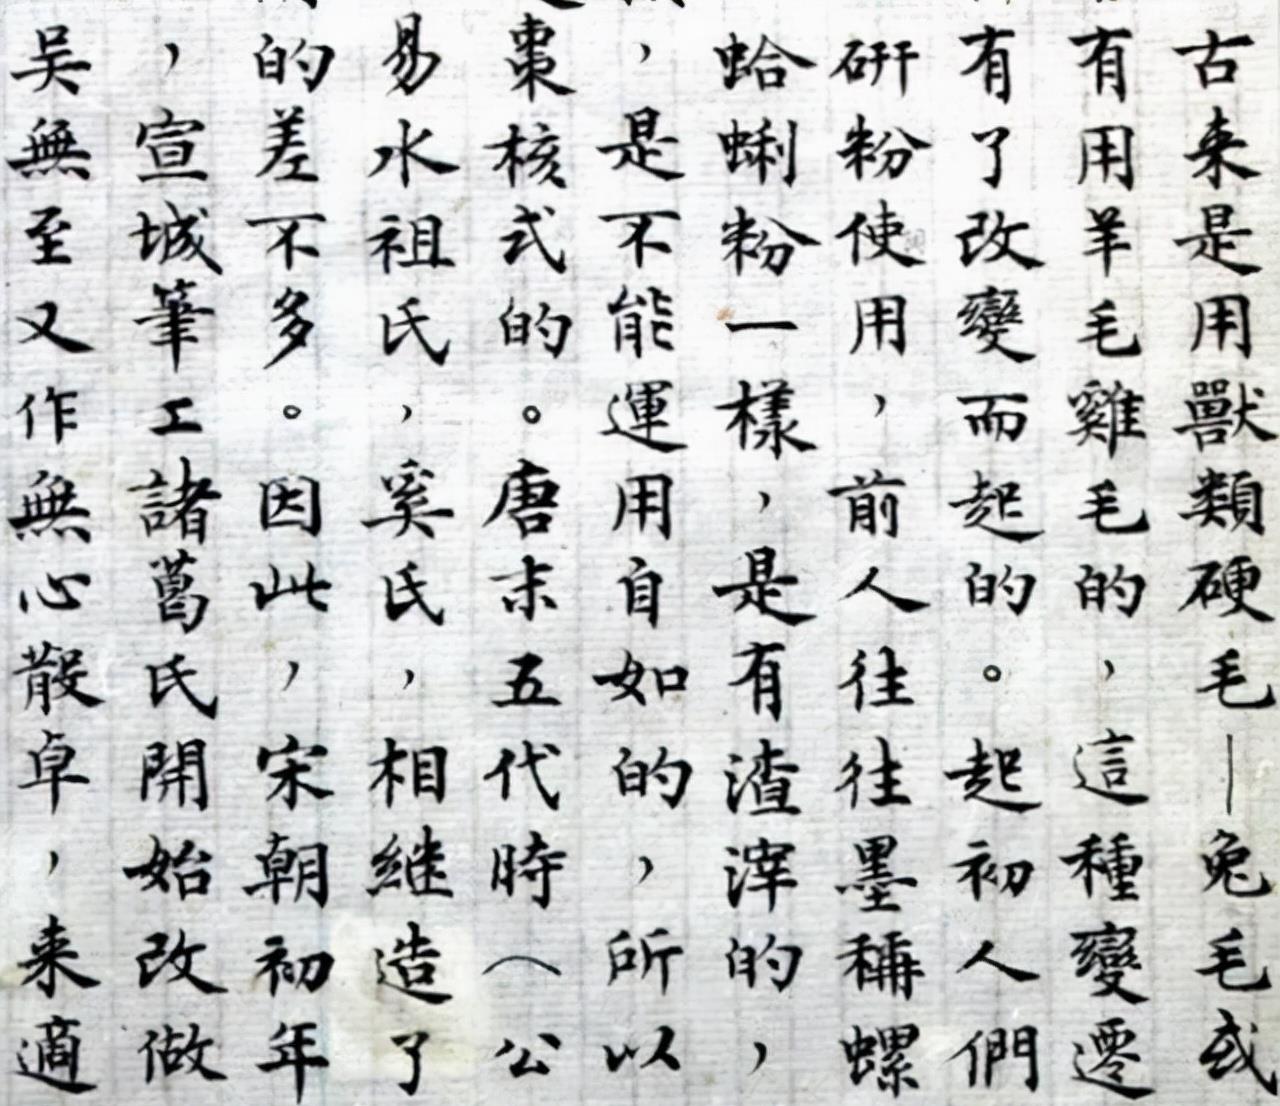 古来是用獸類硬毛—兔毛或
有用羊毛雞毛的，這種變遷
有了改變而起的。起初人們
研粉使用，前人往往墨稱螺
蛤蜊粉一樣，是有渣滓的，
，是不能運用自如的，所以
棗核式的。唐末五代時（公
易水祖氏，奚氏，相継造了
的差不多。因此，宋朝初年
，宣城筆工諸葛氏開始改做
吴無至又作無心散卓，来適